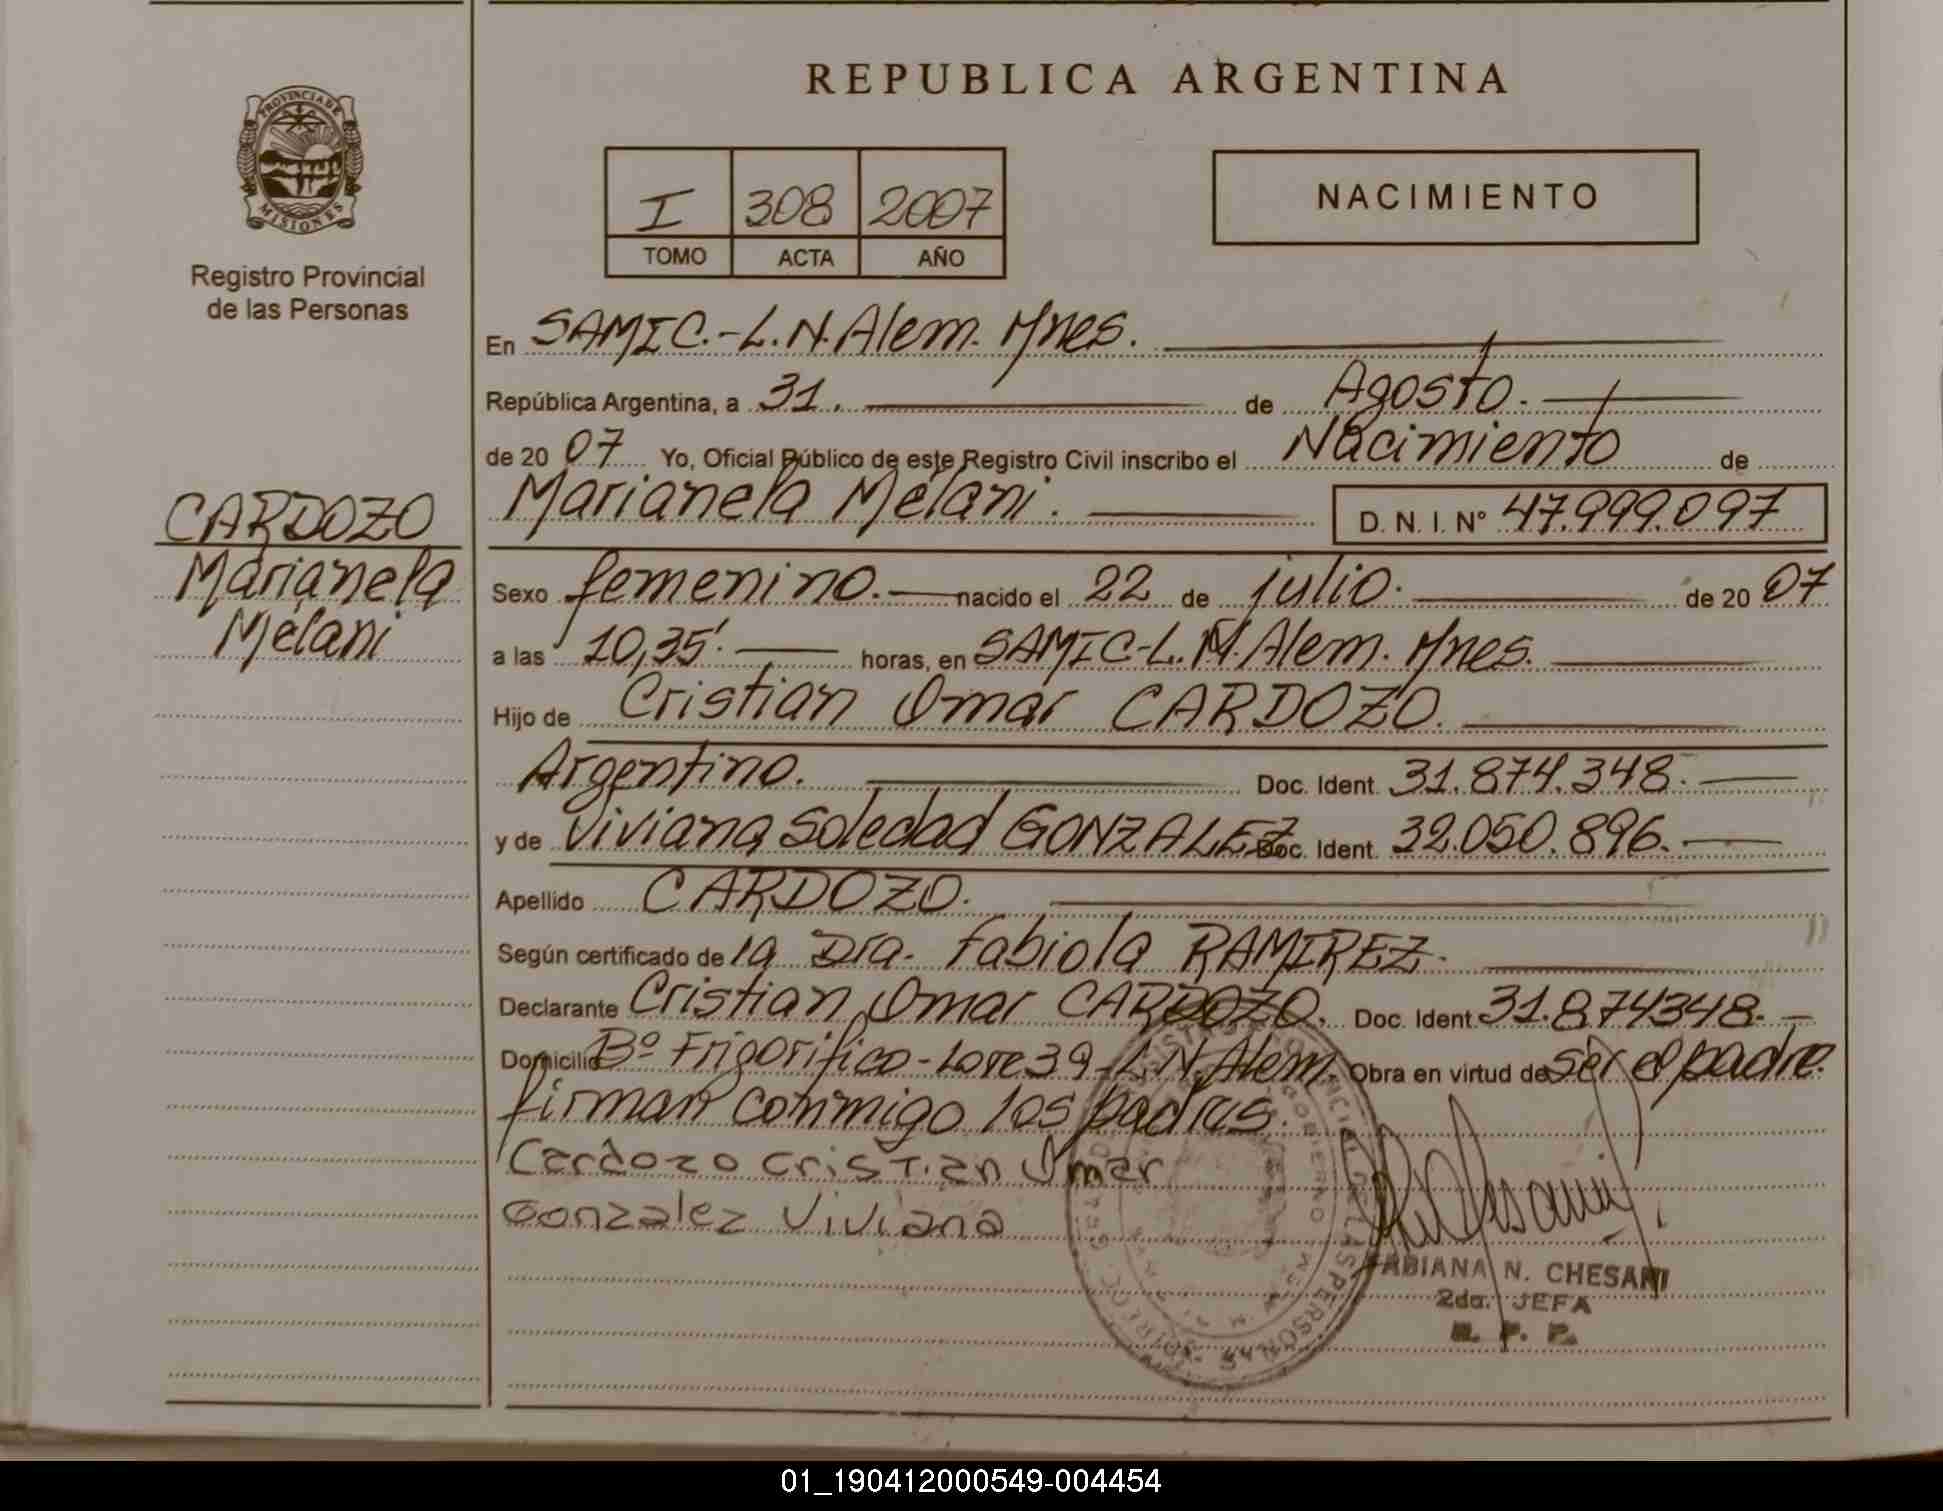 REPUBLICA ARGENTINA
PROVINCIA DE
MISIONES
Registro Provincial
de las Personas
I 308 2007
TOMO ACTA AÑO
NACIMIENTO
CARDOZO
Marianela
Melani
En SAMIC.-L.N.Alem. Mnes.
República Argentina, a 31. de Agosto.
de 20 07 Yo, Oficial Público de este Registro Civil inscribo el Nacimiento de
Marianela Melani. D. N. I. Nº 47.999.097
Sexo femenino. nacido el 22 de julio. de 20 07
a las 10,35'. horas, en SAMIC-L.N.Alem. Mnes.
Hijo de Cristian Omar CARDOZO.
Argentino. Doc. Ident. 31.874.348.
y de Viviana Soledad GONZALEZ Doc. Ident. 32.050.896.
Apellido CARDOZO.
Según certificado de la Dra. Fabiola RAMIREZ.
Declarante Cristian Omar CARDOZO. Doc. Ident. 31.874348.
Domicilio Bº Frigorifico-Lote 39-L.N.Alem. Obra en virtud de ser el padre.
firman conmigo los padres.
Cardozo Cristian Omar
Gonzalez Viviana
FABIANA N. CHESANI
2da. JEFA
R. P. P.
01_190412000549-004454